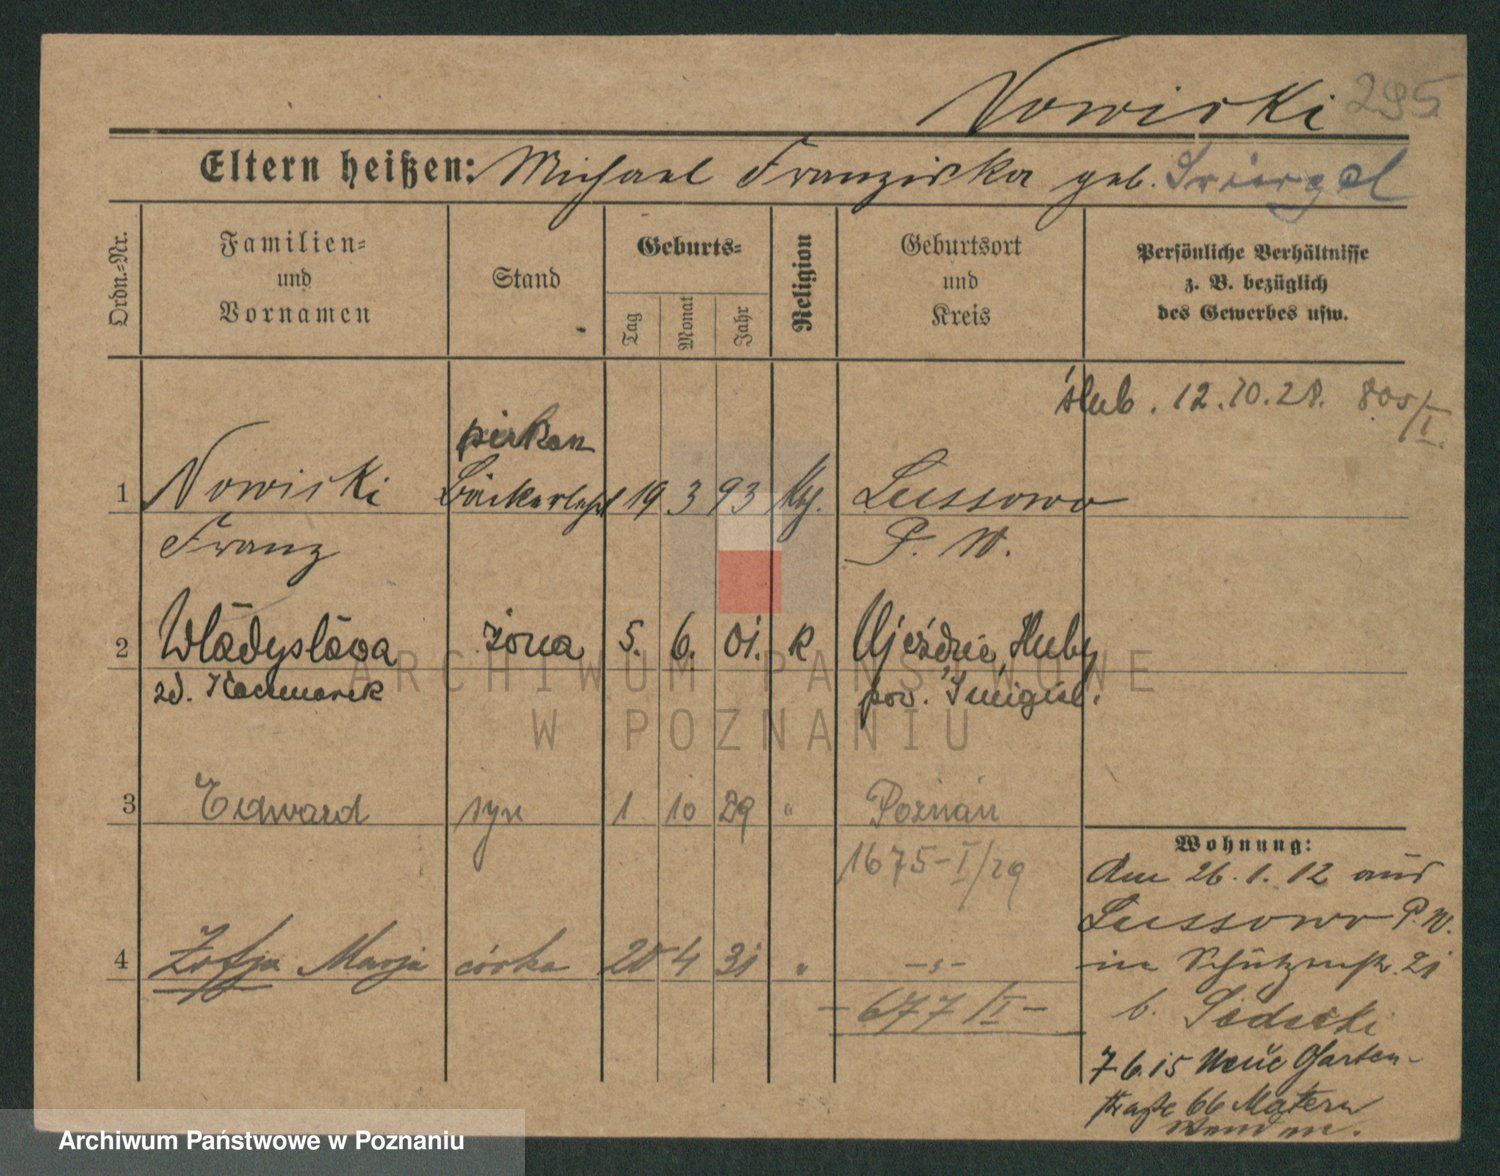 Nowicki 295
Eltern heißen: Michael Franziska geb.
Ordn.=Nr.
Familien=
und
Vornamen
Stand
Geburts=
Tag
Monat
Jahr
Religion
Geburtsort
und
Kreis
Persönliche Verhältnisse
z. B. bezüglich
des Gewerbes usw.
ślub. 12.10.28. 805/I.
piekarz
1 Nowicki Bäckerlehrl 19 3 93 Kth. Lussowo
Franz P. W.
2 Władysława żona 5. 6. 01. k Ujeździe, Huby
zd. Kaczmarek pow. Śmigiel.
3 Edward syn 1 10 29 " Poznań
1675-I/29
4 Zofja Marja córka 20 4 31 " -"-
- 677/II -
Wohnung:
Am 26.1.12 aus
Lussowo P. W.
in Schützenstr. 21
b.
7.6.15 Neue Garten-
straße 66
ARCHIWUM PAŃSTWOWE
W POZNANIU
Archiwum Państwowe w Poznaniu